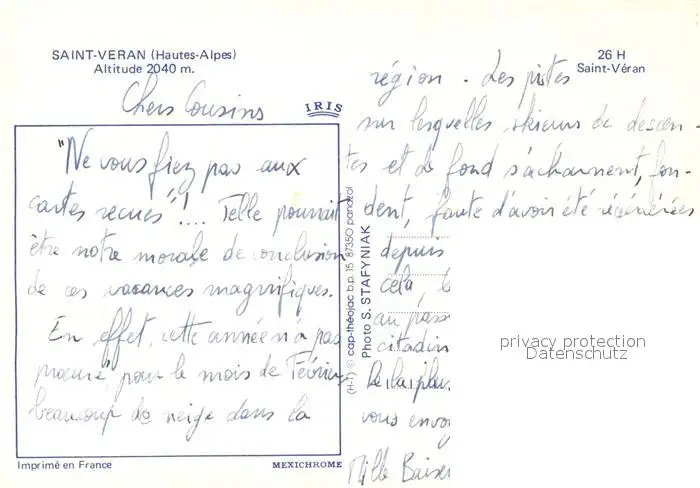 SAINT-VERAN (Hautes-Alpes)
Altitude 2040 m.
26 H
Saint-Véran
IRIS
Chers Cousins
"Ne vous fiez pas aux
cartes recues"!.... Telle pourrait
être notre morale de conclusion
de ces vacances magnifiques.
En effet, cette année n'a pas
procuré, pour le mois de Février,
beaucoup de neige dans la
région. Les pistes
sur lesquelles skieurs de descen-
tes et de fond s'acharnent, fon-
dent, faute d'avoir été régénérées
depuis
cela,
au pass
citadin
De la plus
vous envoy
Mille Baiser
(H-T) © cap-théojac b.p. 15 87350 panazol
Photo S. STAFYNIAK
privacy protection
Datenschutz
Imprimé en France
MEXICHROME